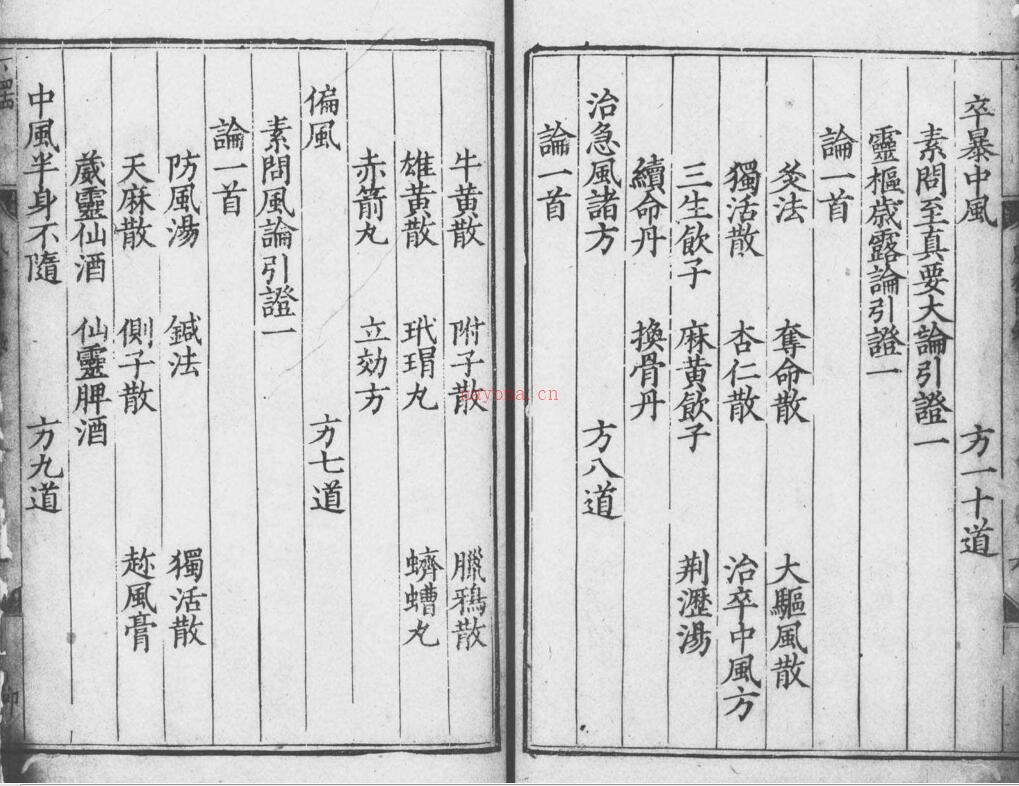 卒暴中風 方一十道
素問至真要大論引證一
靈樞歲露論引證一
論一首
灸法 奪命散 大驅風散
獨活散 杏仁散 治卒中風方
三生飲子 麻黃飲子 荆瀝湯
續命丹 換骨丹
治急風諸方 方八道
論一首
牛黃散 附子散 臘鴉散
雄黃散 玳瑁丸 蠐螬丸
赤箭丸 立効方
偏風 方七道
素問風論引證一
論一首
防風湯 鍼法 獨活散
天麻散 側子散 趂風膏
葳靈仙酒 仙靈脾酒
中風半身不隨 方九道
nayona.cn